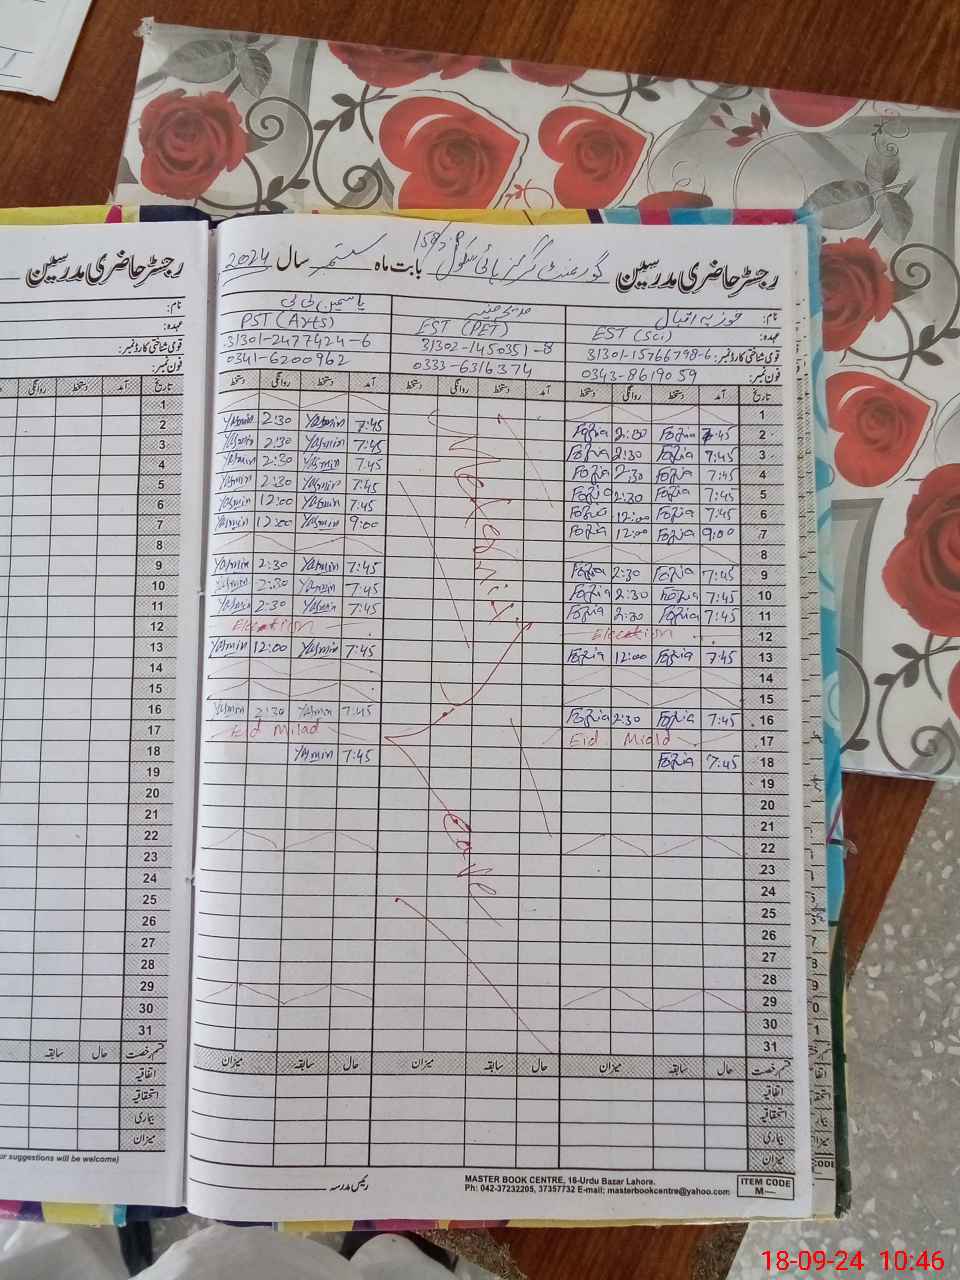 رجسٹر حاضری مدرسین گورنمنٹ گرلز ہائی سکول 158 بابت ماہ ستمبر سال 2024
نام: فوزیہ اقبال
عہدہ: EST (Sci) EST (PET) PST (Arts)
قومی شناختی کارڈ نمبر: 31301-15766798-6 31302-1450351-8 31301-2477424-6
فون نمبر: 0343-8619059 0333-6316374 0341-6200962
تاریخ آمد دستخط روانگی دستخط آمد دستخط روانگی دستخط آمد دستخط روانگی دستخط
1
2 7:45 Fozia 2:30 Fozia 7:45 Yasmin 2:30 Yasmin
3 7:45 Fozia 2:30 Fozia 7:45 Yasmin 2:30 Yasmin
4 7:45 Fozia 2:30 Fozia 7:45 Yasmin 2:30 Yasmin
5 7:45 Fozia 2:30 Fozia 7:45 Yasmin 2:30 Yasmin
6 7:45 Fozia 12:00 Fozia 7:45 Yasmin 12:00 Yasmin
7 9:00 Fozia 12:00 Fozia 9:00 Yasmin 12:00 Yasmin
8
9 7:45 Fozia 2:30 Fozia 7:45 Yasmin 2:30 Yasmin
10 7:45 Fozia 2:30 Fozia 7:45 Yasmin 2:30 Yasmin
11 7:45 Fozia 2:30 Fozia 7:45 Yasmin 2:30 Yasmin
12
13 7:45 Fozia 12:00 Fozia 7:45 Yasmin 12:00 Yasmin
14
15
16 7:45 Fozia 2:30 Fozia 7:45 Yasmin 2:30 Yasmin
17 Eid Milad Eid Milad
18 7:45 Fozia 7:45 Yasmin
19
20
21
22
23
24
25
26
27
28
29
30
31
Leave
قسم رخصت حال سابقہ میزان حال سابقہ میزان حال سابقہ میزان
اتفاقیہ
استحقاقیہ
بیماری
میزان
رئیس مدرسہ
MASTER BOOK CENTRE, 16-Urdu Bazar Lahore.
Ph: 042-37232205, 37357732 E-mail; masterbookcentre@yahoo.com
ITEM CODE
M—
رجسٹر حاضری مدرسین
نام:
عہدہ:
قومی شناختی کارڈ نمبر:
فون نمبر:
تاریخ آمد دستخط روانگی
1
2
3
4
5
6
7
8
9
10
11
12
13
14
15
16
17
18
19
20
21
22
23
24
25
26
27
28
29
30
31
قسم رخصت حال سابقہ
اتفاقیہ
استحقاقیہ
بیماری
میزان
or suggestions will be welcome)
18-09-24 10:46